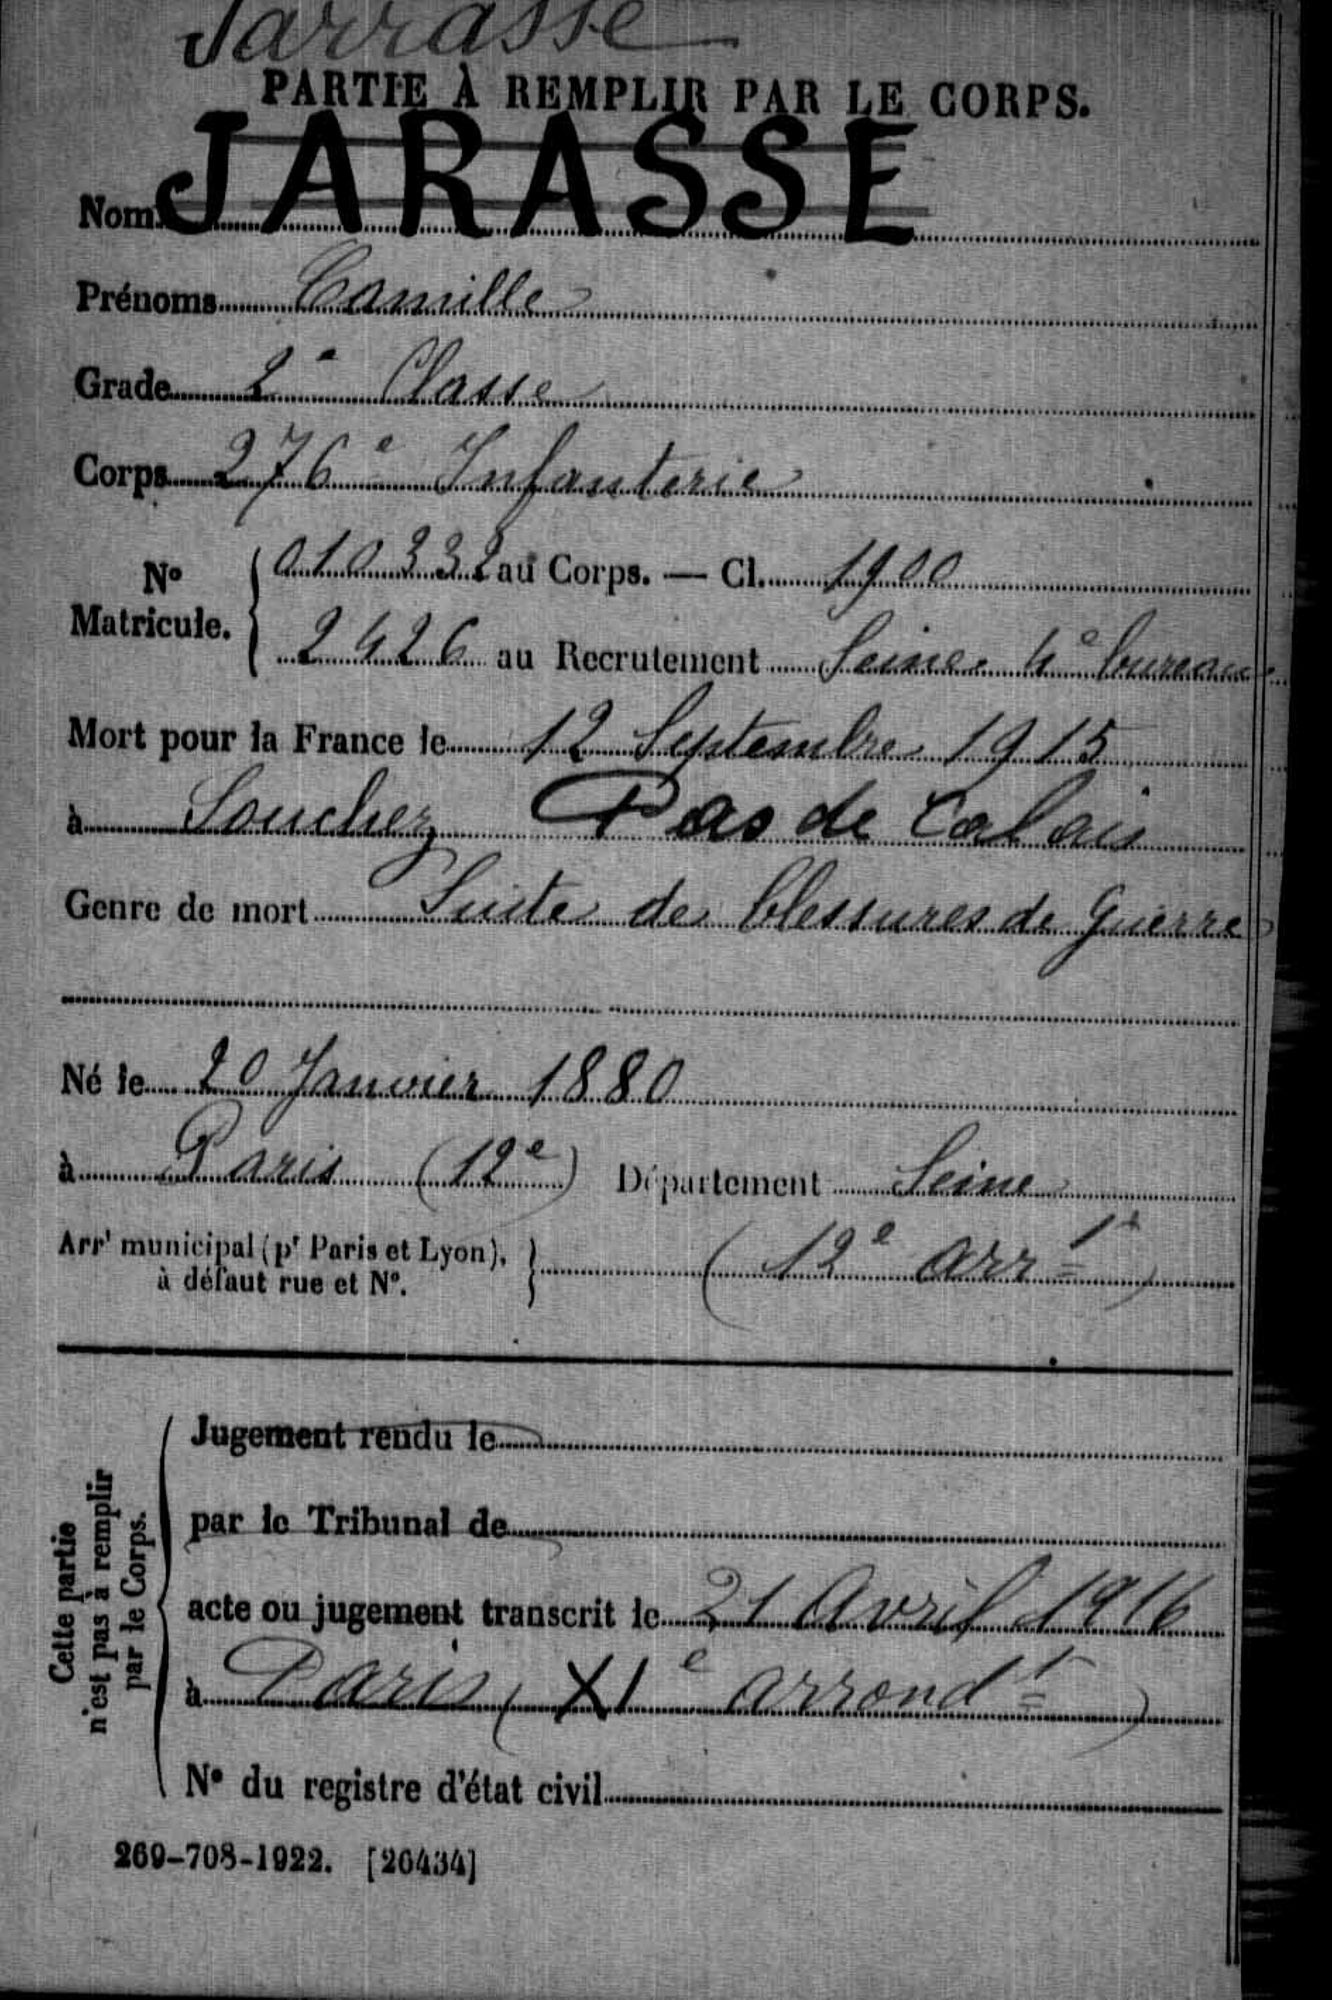 Jarrasse
PARTIE À REMPLIR PAR LE CORPS.
Nom. JARASSE
Prénoms Camille
Grade 2e Classe
Corps 276e Infanterie
No Matricule. { 010332 au Corps. — Cl. 1900
2426 au Recrutement Seine 4e bureau
Mort pour la France le 12 Septembre 1915
à Souchez Pas de Calais
Genre de mort Suite de blessures de Guerre
Né le 20 Janvier 1880
à Paris (12e) Département Seine
Arrt municipal (pr Paris et Lyon), à défaut rue et No. } (12e arrt)
Cette partie n'est pas à remplir par le Corps.
Jugement rendu le
par le Tribunal de
acte ou jugement transcrit le 21 Avril 1916
à Paris (XIe arrondt)
No du registre d'état civil
269-708-1922. [26434]